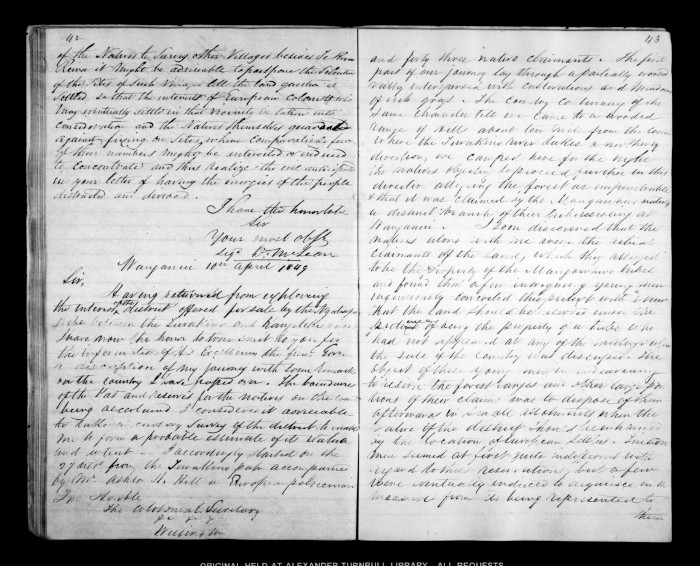 42
of the Natives to Survey other Villages besides Te Kiwi
Rewa it might be adviseable to postpone the selection
of the Sites of Such Villages till the land question is
Settled, so that the interests of European Colonists who
may eventually settle in that vicinity be taken into
Consideration and the Natives themselves guarded
against fixing on Sites, where Comparatively few
of their numbers might be interested or induced
to Concentrate and thus realize the evil anticipated
in your letter of having the energies of the people
distracted and divided.
I have the honor to be
Sir
Your most obdt
Sigd D. McLean
Wanganui 10th April 1849
Sir,
Having returned from exploring
the interior of the district offered for sale by the
between the Turakina and Rangitikei
I have now the honor to transmit to you for
the information of His Excellency the Lieut Govr
a description of my journey with some remarks
on the Country I have passed over. The boundaries
of the Pas and reserves for the natives on the
being ascertained I considered it adviseable
to make a cursory Survey of the district to enable
me to form a probable estimate of its Value
and extent. I accordingly started on the
27 ulto from the Turakina pah accompanied
by Mr. H. Hall a European policeman
The Honble
The Colonial Secretary
Wellington
43
and forty three native claimants. The first
part of our journey lay through a partially wooded
Valley interspersed with cultivations and Meadows
of rich grass. The Country Continuing of the
Same character till we Came to a wooded
range of hills about ten miles from the
Where the Turakina river takes a northerly
direction, we camped here for the night
the natives objecting to proceed further in this
direction alleging the forest as impenetrable
& that it was claimed by the natives
a distinct branch of their tribe residing at
Wanganui. I soon discovered that the
natives along with me were the actual
Claimants of the land, which they alleged
to be the property of the tribe
and found that a few intriguing young men
ingeniously concocted this pretext with a view
that the land should be reserved under the
pretence of being the property of a tribe who
had not appeared at any of the meetings when
the sale of the Country was discussed. The
object of these young men in endeavouring
to reserve the forest ranges and other large
of their claim was to dispose of them
afterwards in Small allotments when the
Value of the district should be enhanced
by the location of European Settlers. The
men seemed at first quite indifferent with
regard to these reservations, but a few
were eventually induced to acquiesce in the
measure from its being represented to
them
ORIGINAL HELD AT ALEXANDER TURNBULL LIBRARY. ALL REQUESTS